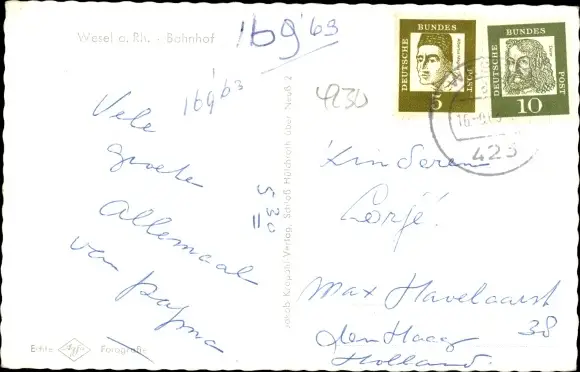 Wesel a. Rh. - Bahnhof
16 9 '63
16 9 '63
4230
DEUTSCHE BUNDES POST
5
DEUTSCHE BUNDES POST
10
16
423
Vele
groete
Allemaal
van pappa
5 30
Jakob Krapohl-Verlag, Schloß Hülchrath über Neuß 2
Kinderen
Max Havelaarst
38
den Haag
Holland.
Echte Agfa Fotografie